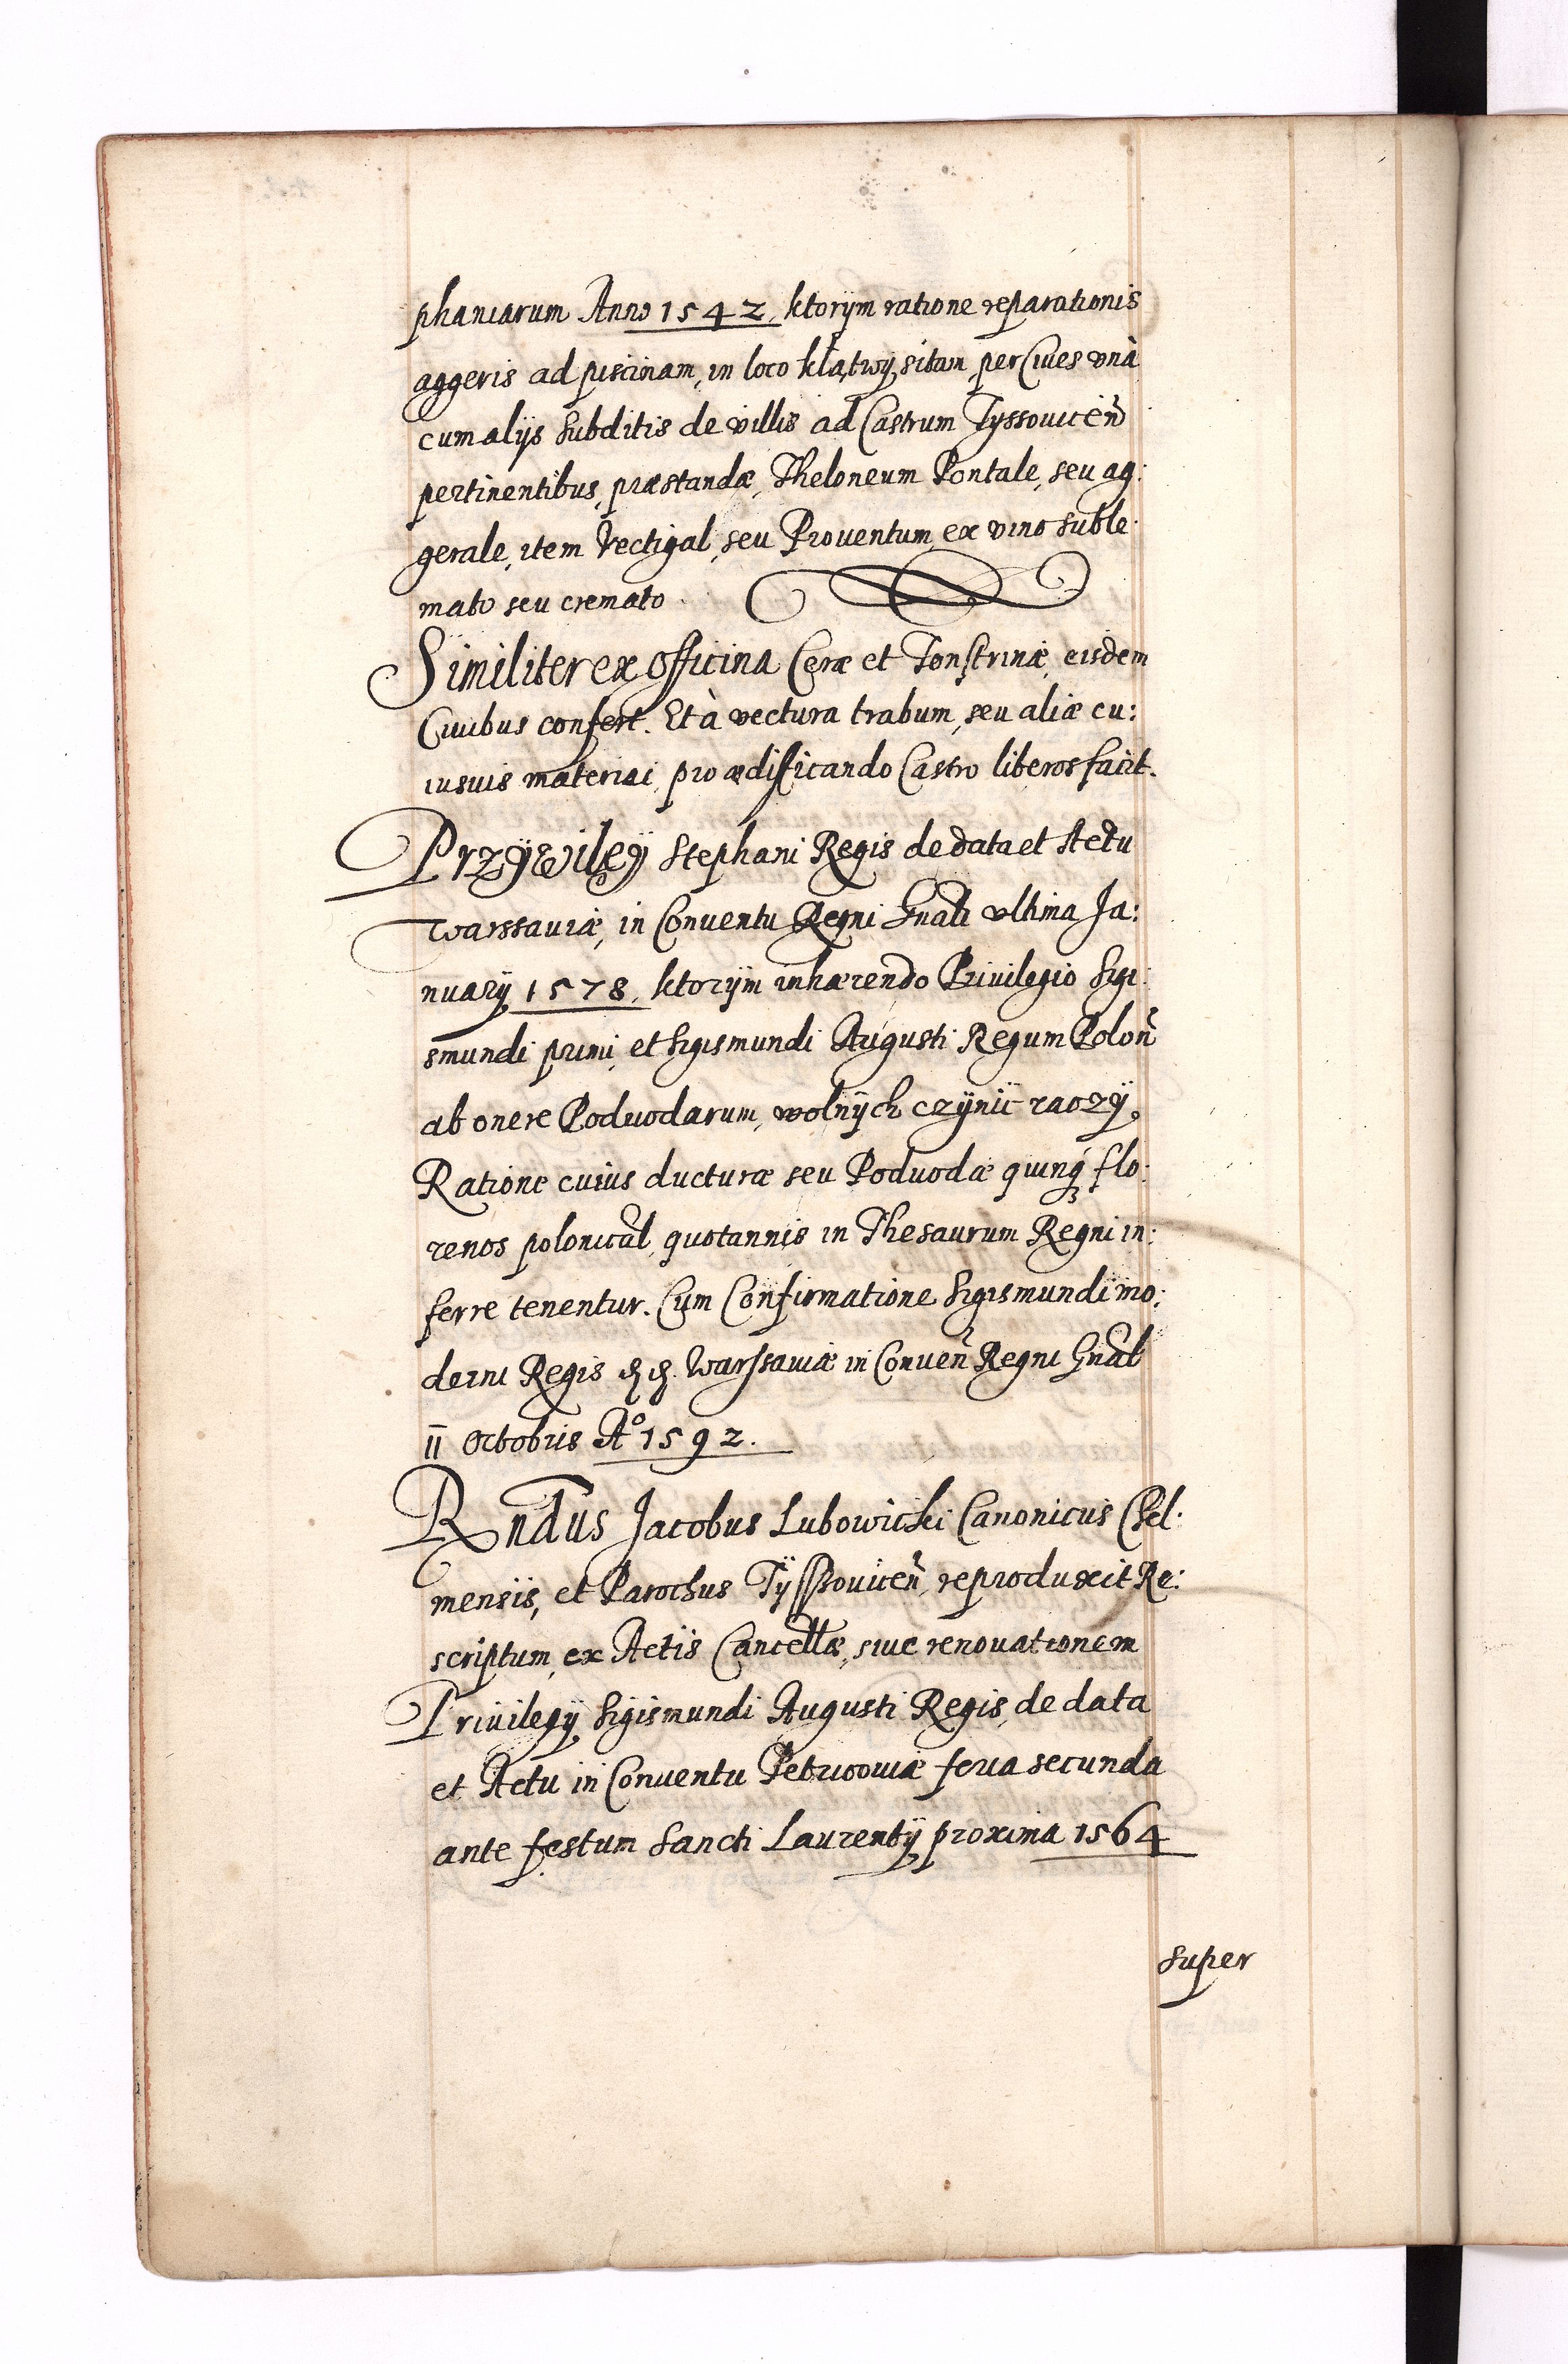 phaniarum Anno 1542, ktorÿm ratione reparationis
aggeris ad piscinam, in loco klątwÿ sitam, per Ciues vnà
cum alÿs Subditis de villis ad Castrum Tyssouicen̄
pertinentibus, præstandæ, Theloneum Pontale, seu ag:
gerale, item Vectigal, seu Prouentum, ex vino suble:
mato seu cremato.
Similiter ex officina Ceræ et Tonstrinæ, eisdem
Ciuibus confert. Et à vectura trabum, seu aliæ cu:
iusuis materiai, pro ædificando Castro liberos facit.
Przÿwileÿ Stephani Regis de data et Actu
Warssauiæ, in Conuentu Regni Gnali vltima Ja:
nuarÿ 1578, ktorÿm inhærendo Priuilegio Sigi:
smundi primi, et Sigismundi Augusti Regum Polon̄
ab onere Poduodarum, wolnÿch czÿnić raczÿ,
Ratione cuius ducturæ seu Poduodæ quinqꝫ flo:
renos polonical, quotannis in Thesaurum Regni in:
ferre tenentur. Cum Confirmatione Sigismundi mo:
derni Regis Warssauiæ in Conuen̄ Regni Gnal
11 Octobris Aº 1592.
Rndus Jacobus Lubowicki Canonicus Chel:
mensis, et Parochus Tÿssouicen̄, reproduxit Re:
scriptum, ex Actis Cancellæ, siue renouationem
Priuilegÿ Sigismundi Augusti Regis, de data
et Actu in Conuentu Petricouiæ feria secunda
ante festum Sancti Laurentÿ proxima 1564
super